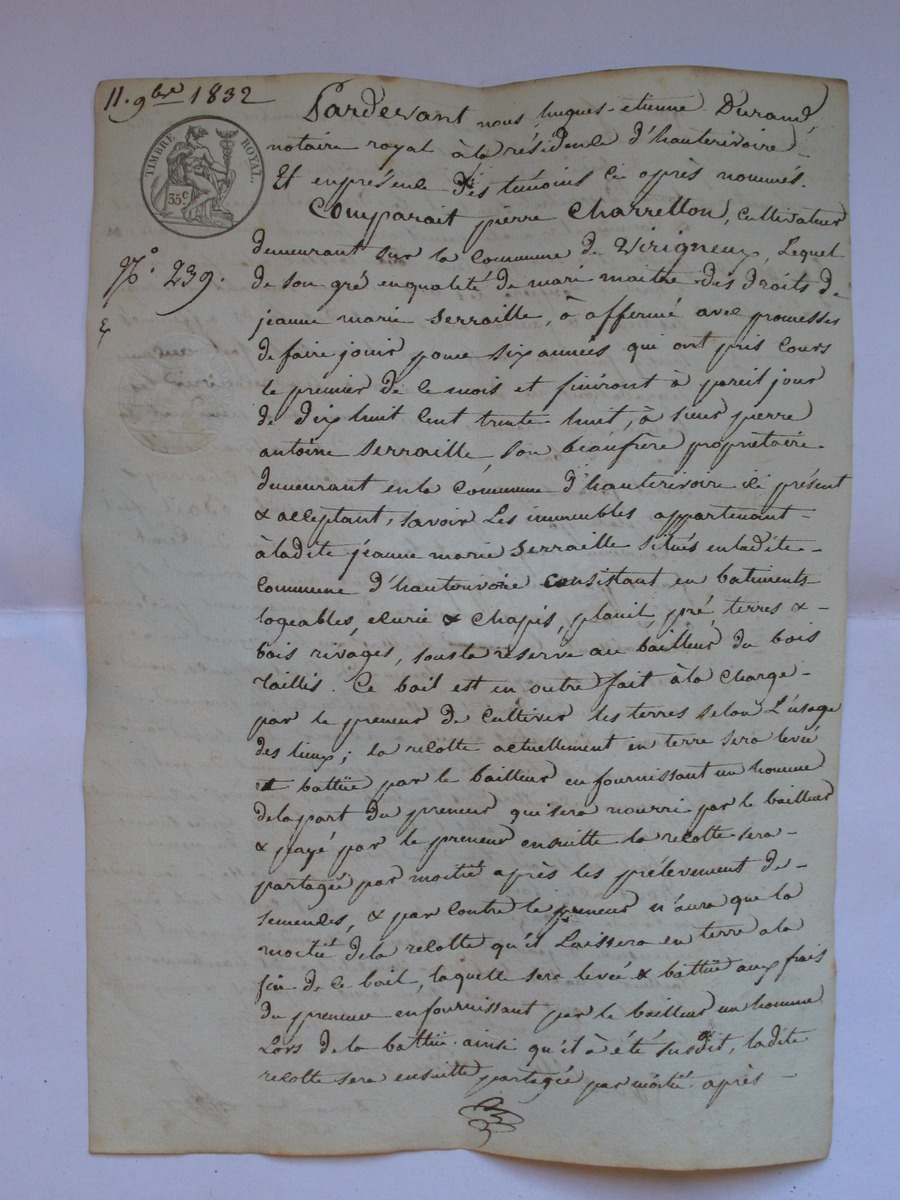 11. 9bre 1832
TIMBRE ROYAL.
35 c
N.° 239.
Pardevant nous hugues-etienne Durand,
notaire royal à la résidence d'hauterivoire
Et en présence des témoins ci après nommés.
Comparait pierre Charretton, cultivateur
demeurant sur la commune de Virigneux, Lequel
de son gré en qualité de mari maitre des droits de
jeanne marie serraille, à affermé avec promesses
de faire jouir pour six années qui ont pris cours
le premier de ce mois et finiront à pareil jour
de dix huit cent trente huit, à sieur pierre
antoine serraille son beaufrere proprietaire
demeurant en la Commune d'hauterivoire ici présent
& acceptant, savoir Les immeubles appartenant
à ladite jeanne marie serraille situés en ladite
commune d'hauterivoire consistant en batiments
logeables, ecurie & chapis, plauit, pré, terres &
bois rivages, sous la reserve au bailleur du bois
taillis. Ce bail est en outre fait à la charge
par le preneur de cultiver les terres selon L'usage
des lieux; la recolte actuellement en terre sera levée
et battüe par le bailleur en fournissant un homme
de la part du preneur qui sera nourri par le bailleur
& payé par le preneur ensuitte la recolte sera
partagée par moitié après les prélevement de
semences, & par contre le preneur n'aura que la
moitié de la recolte qu'il Laissera en terre a la
fin de ce bail, laquelle sera levée & battüe aux frais
du preneur en fournissant par le bailleur un homme
Lors de la battüe ainsi qu'il à été susdit, ladite
recolte sera ensuitte partagée par moitié après